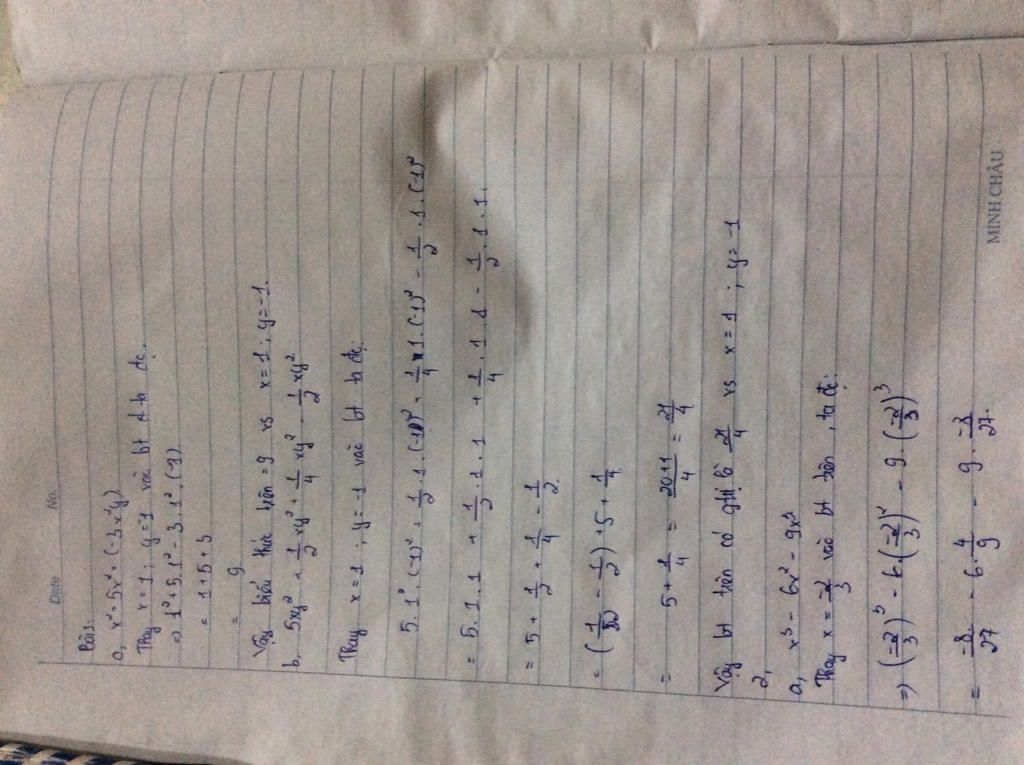 Date No.
Bài 1.
a, x² + 5x² + (-3x²y)
Thay x = 1 ; y = -1 vào bt ta đc.
=> 1² + 5.1² - 3.1².(-1)
= 1 + 5 + 3
= 9
Vậy biểu thức trên = 9 vs x = 1 ; y = -1.
b, 5xy² + 1/2 xy² + 1/4 xy² - 1/2 xy²
Thay x = 1 ; y = -1 vào bt ta đc:
5.1.(-1)² + 1/2.1.(-1)² + 1/4.1.(-1)² - 1/2.1.(-1)²
= 5.1.1 + 1/2.1.1 + 1/4.1.1 - 1/2.1.1.
= 5 + 1/2 + 1/4 - 1/2.
= (1/2 - 1/2) + 5 + 1/4.
= 5 + 1/4 = 20+1/4 = 21/4
Vậy bt trên có gtrị là 21/4 vs x = 1 ; y = -1
2,
a, x³ - 6x² - 9x³
Thay x = -2/3 vào bt trên, ta đc:
=> (-2/3)³ - 6.(-2/3)² - 9.(-2/3)³
= -8/27 - 6.4/9 - 9.-8/27.
MINH CHÂU